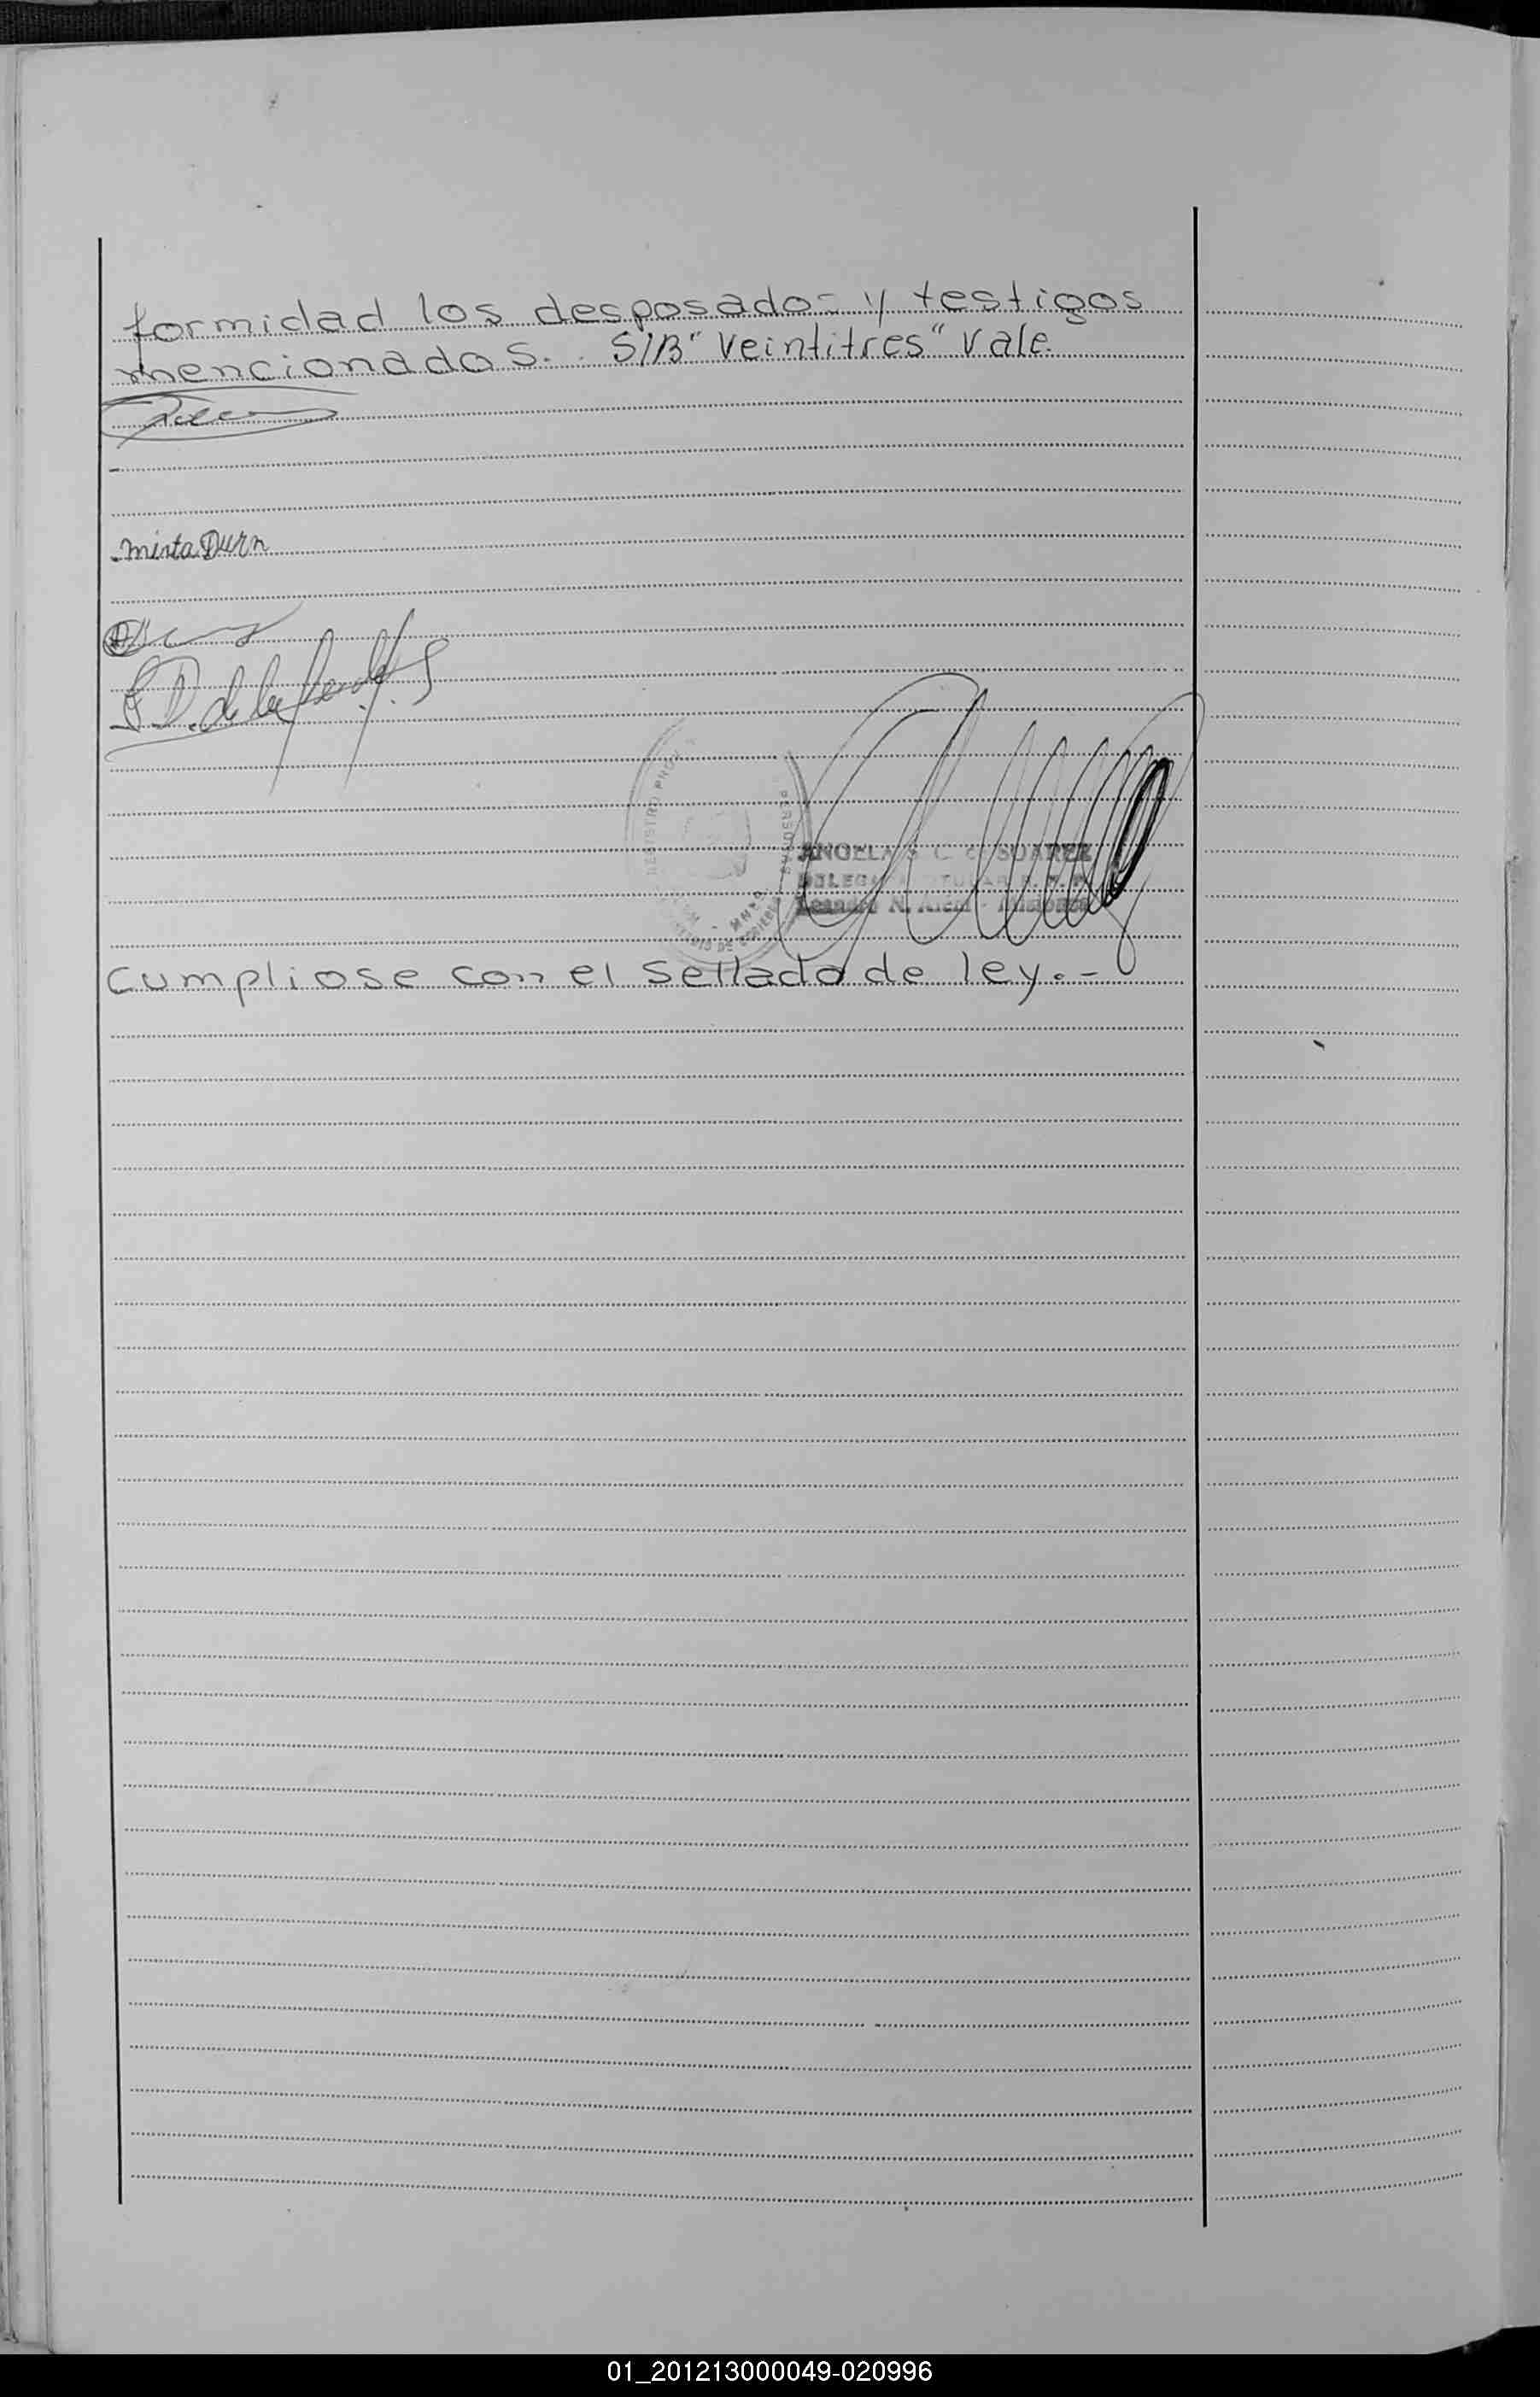 formidad los desposados y testigos
mencionados. S/B "veintitres" vale.
Mirta Durn
REGISTRO PROV
ANGELA S C. de SUAREZ
DELEGADA TITULAR
Leandro N. Alem - Misiones
Cumpliose con el sellado de ley.-
01_201213000049-020996